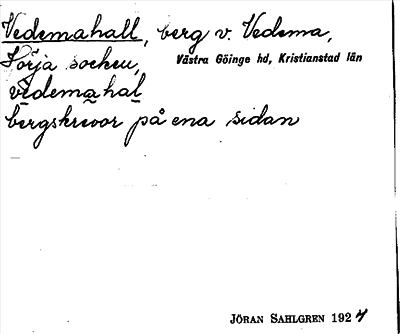 Vedemahall, berg v. Vedema,
Sörja socken, Västra Göinge hd, Kristianstad län
vedemahal
bergskrevor på ena sidan
JÖRAN SAHLGREN 1924